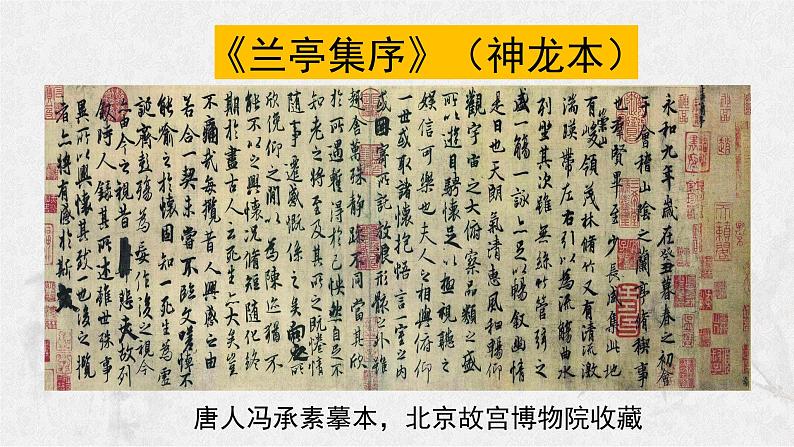 《兰亭集序》（神龙本）
永和九年歲在癸丑暮春之初會
于會稽山陰之蘭亭脩稧事
也羣賢畢至少長咸集此地
有崇山峻領茂林脩竹又有清流激
湍暎帶左右引以為流觴曲水
列坐其次雖無絲竹管弦之
盛一觴一詠亦足以暢敘幽情
是日也天朗氣清惠風和暢仰
觀宇宙之大俯察品類之盛
所以遊目騁懷足以極視聽之
娛信可樂也夫人之相與俯仰
一世或取諸懷抱悟言一室之內
或因寄所託放浪形骸之外雖
趣舍萬殊靜躁不同當其欣
於所遇蹔得於己怏然自足不
知老之將至及其所之既惓情
隨事遷感慨係之矣向之所
欣俛仰之閒以為陳跡猶不
能不以之興懷況脩短隨化終
期於盡古人云死生亦大矣豈
不痛哉每攬昔人興感之由
若合一契未嘗不臨文嗟悼不
能喻之於懷固知一死生為虛
誕齊彭殤為妄作後之視今
亦由今之視昔悲夫故列
敘時人錄其所述雖世殊事
異所以興懷其致一也後之攬
者亦將有感於斯文
唐人冯承素摹本，北京故宫博物院收藏